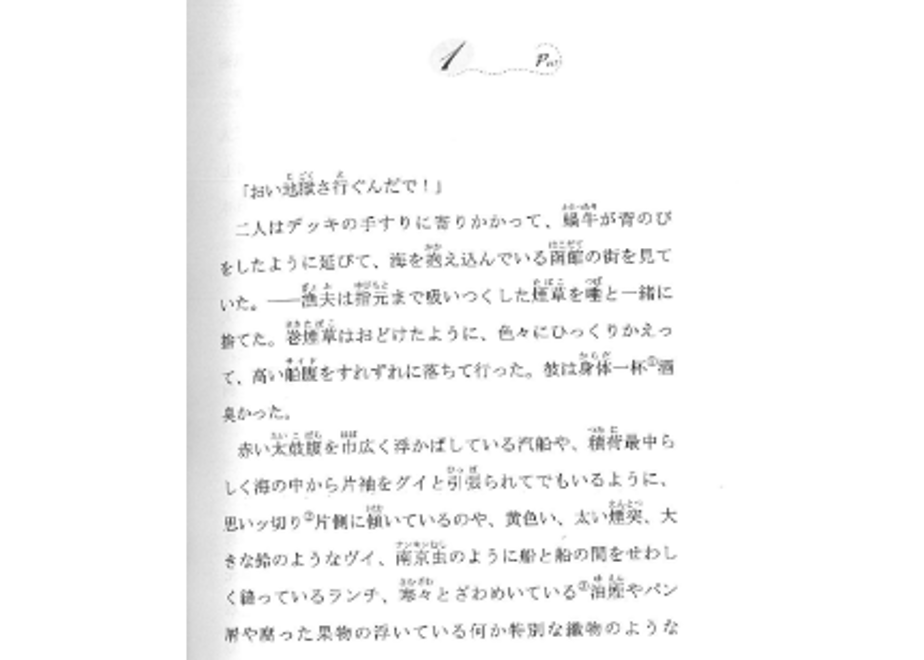 1
「おい地獄さ行ぐんだで！」
二人はデッキの手すりに寄りかかって、蝸牛が背のび
をしたように延びて、海を抱え込んでいる函館の街を見て
いた。――漁夫は指元まで吸いつくした煙草を唾と一緒に
捨てた。巻煙草はおどけたように、色々にひっくりかえっ
て、高い船腹をすれずれに落ちて行った。彼は身体一杯①酒
臭かった。
赤い太鼓腹を巾広く浮かばしている汽船や、積荷最中ら
しく海の中から片袖をグイと引張られてでもいるように、
思いッ切り②片側に傾いているのや、黄色い、太い煙突、大
きな鈴のようなヴイ、南京虫のように船と船の間をせわし
く縫っているランチ、寒々とざわめいている③油煙やパン
屑や腐った果物の浮いている何か特別な織物のような